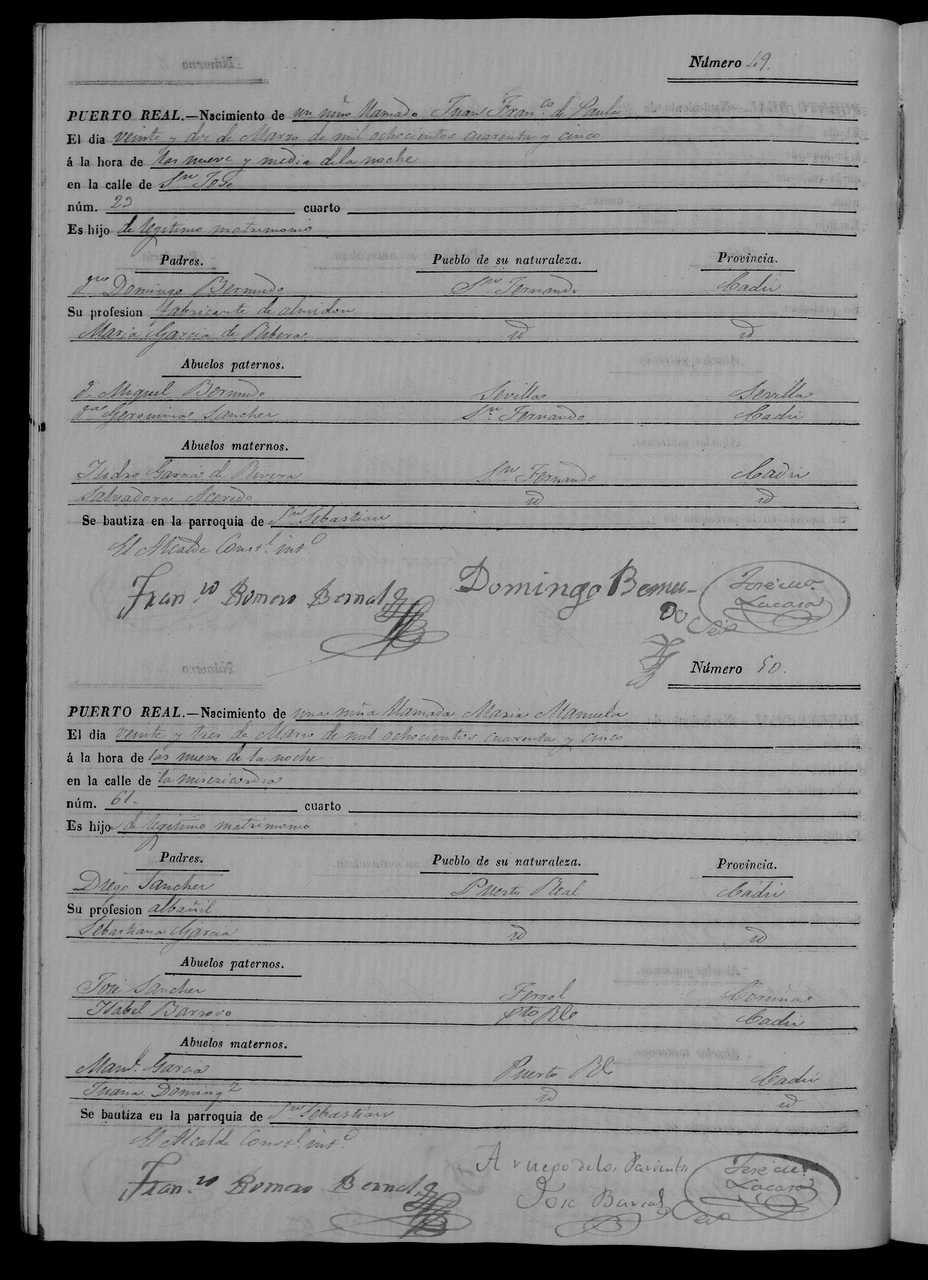 Número 49.
PUERTO REAL.—Nacimiento de un niño llamado Juan Franco. de Paula
El dia veinte y dos de Marzo de mil ochocientos cuarenta y cinco
á la hora de las nueve y media de la noche
en la calle de Sn José
núm. 23 cuarto
Es hijo de legitimo matrimonio
Padres. Pueblo de su naturaleza. Provincia.
Domingo Bermudo Sn Fernando Cadiz
Su profesion fabricante de almidon
Maria Garcia de Ribera id id
Abuelos paternos.
Dn Miguel Bermudo Sevilla Sevilla
Geronima Sanchez Sn Fernando Cadiz
Abuelos maternos.
Isidro Garcia de Rivera Sn Fernando Cadiz
Salvadora Acevedo id id
Se bautiza en la parroquia de Sn Sebastian
El Alcalde Constl. into
Franco Romero Bernal
Domingo Bermu-
do
José
Lacasa
Número 50.
PUERTO REAL.—Nacimiento de una niña llamada Maria Manuela
El dia veinte y tres de Marzo de mil ochocientos cuarenta y cinco
á la hora de las nueve de la noche
en la calle de la misericordia
núm. 61- cuarto
Es hijo de legitimo matrimonio
Padres. Pueblo de su naturaleza. Provincia.
Diego Sanchez Puerto Real Cadiz
Su profesion albañil
Sebastiana Garcia id id
Abuelos paternos.
José Sanchez Ferrol Coruña
Isabel Barroso Pto Rl Cadiz
Abuelos maternos.
Manl. Garcia Puerto Rl Cadiz
Juana Domingz id id
Se bautiza en la parroquia de Sn Sebastian
El Alcalde Constl. into
Franco Romero Bernal
A ruego de los
Jose
José
Lacasa